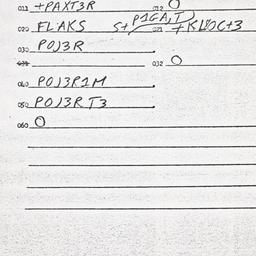 011 +PAXT3R 012 O
020 FLAKS S+P1GA1T 021 +KLOC+3
030 POJ3R
031 032 O
040 POJ3R1M
050 POJ3RT3
060 O